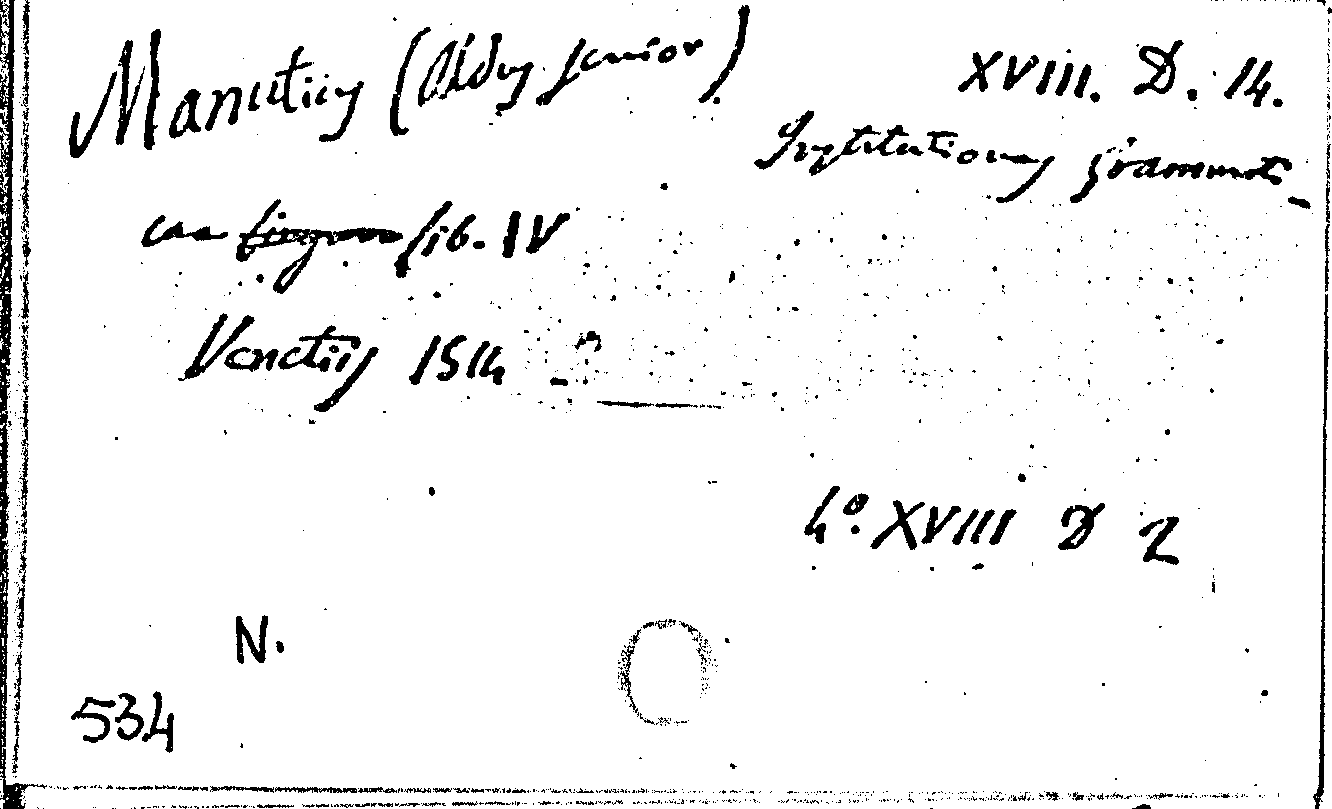 Manutius (Aldus junior)
XVIII. D. 14.
Institutiones grammati-
cae lib. IV
Venetiis 1514 -
4°. XVIII D 2
N.
534